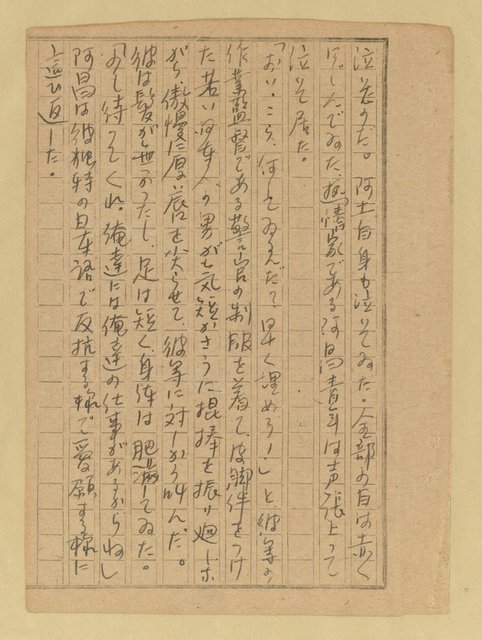 泣きだ。阿土自身も泣いてゐた。全部の目は赤く
んでゐた、熱情家である阿昌青年は声張上って
泣いて居た。
「おい、こら、何してゐるんだ？早く埋めろ！」と、彼等の
作業監督である警官の制服を着て、皮脚絆をつけ
た若い日本人の男が気短かさうに棍棒を振り廻しな
がら、傲慢に厚い唇を尖らせて、彼等に対しから叫んだ。
彼は髪がし、足は短く身体は肥満してゐた。
「少し待ってくれ。俺達には俺達の仕事があるからね」
阿昌は彼独特の日本語で反抗する様で哀願する様に
言ひ返した。